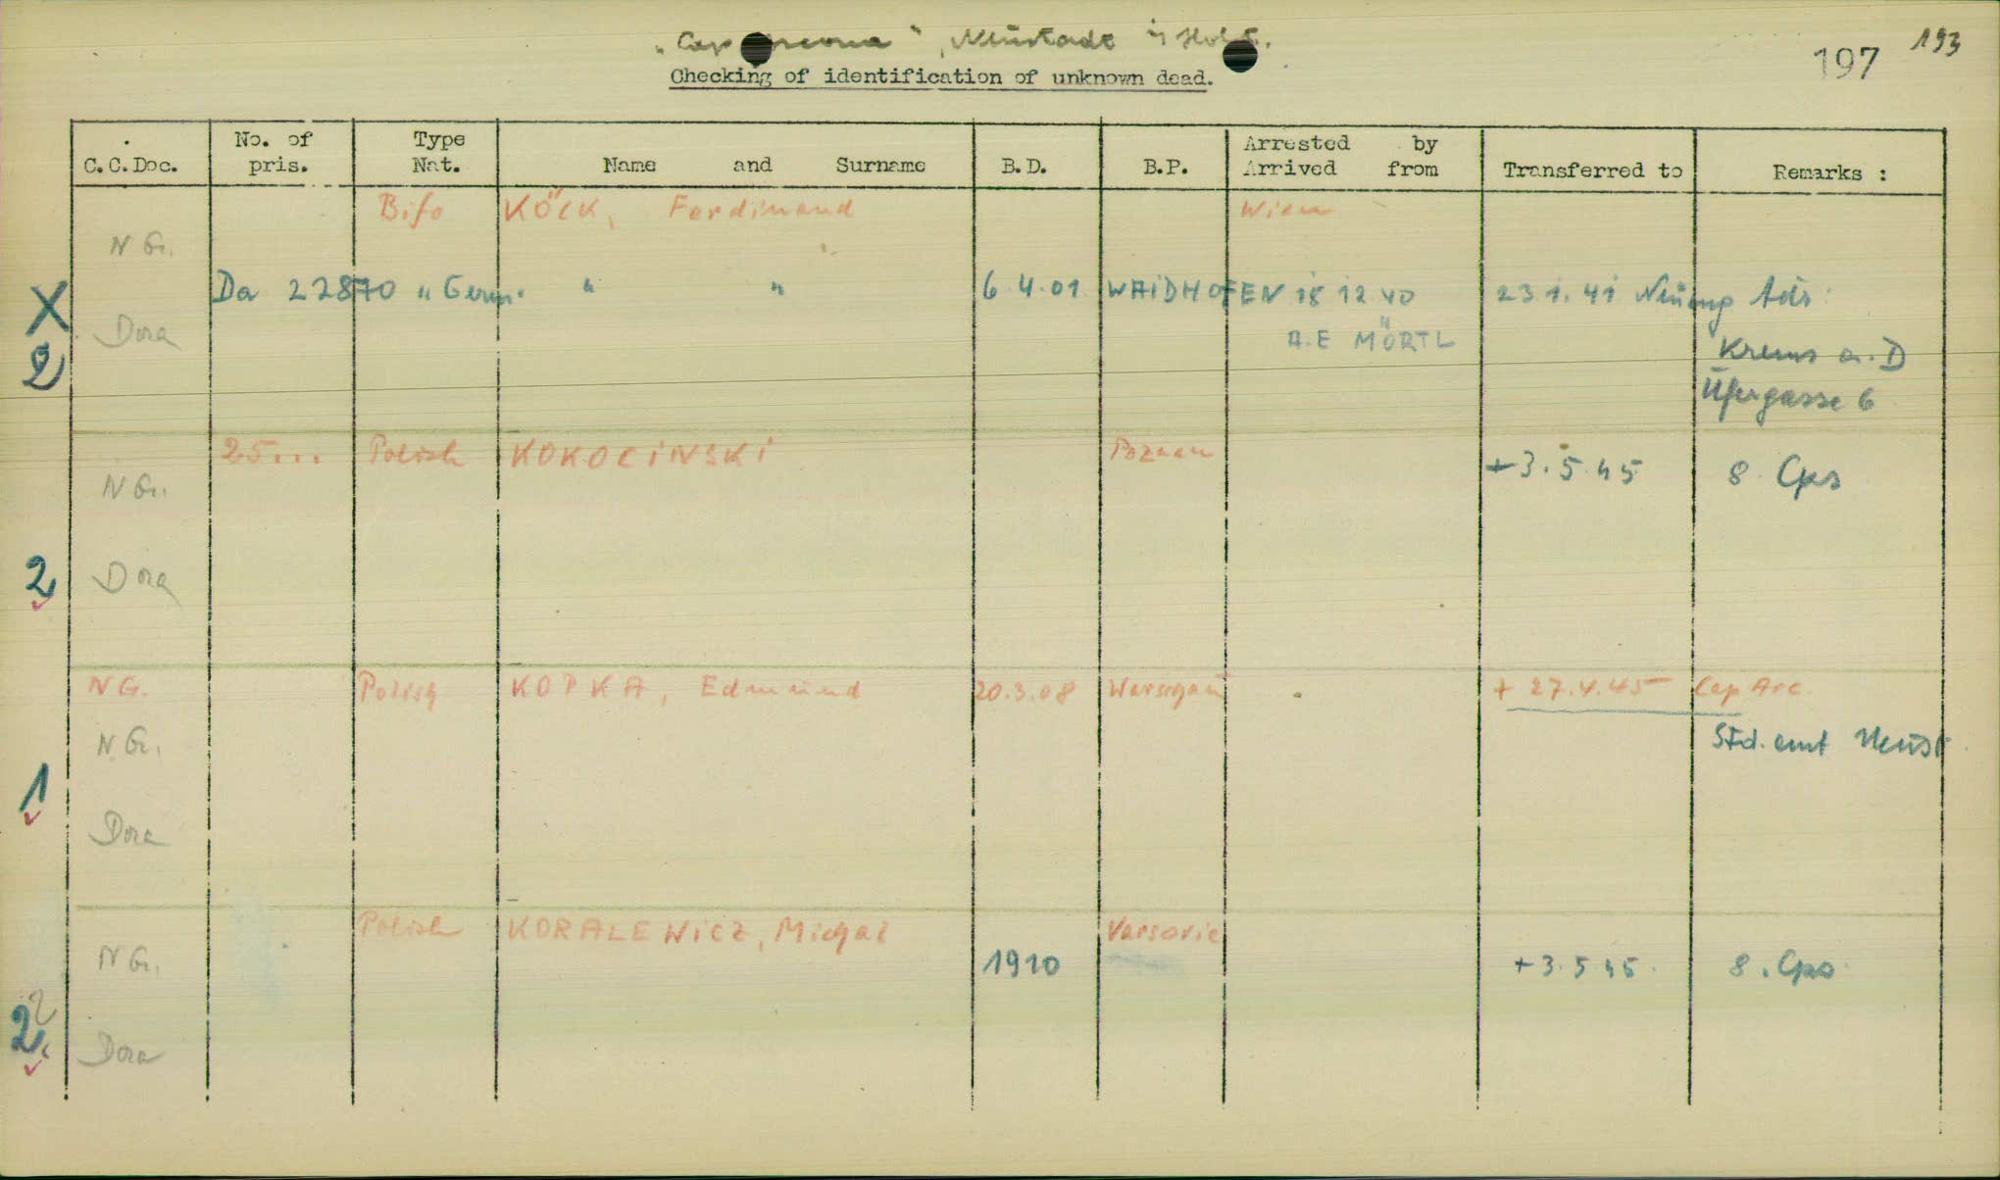 "Cap Arcona", Neustadt i/Holst.
Checking of identification of unknown dead.
197 193
C.C.Doc. No. of pris. Type Nat. Name and Surname B.D. B.P. Arrested by Arrived from Transferred to Remarks :
Bifo KÖCK, Ferdinand Wien
N G.
X Da 22870 " Germ. " " 6.4.01 WAIDHOFEN 18 12 40 23 1. 41 Neueng Adr:
Dora A.E MÖRTL Krems a. D
2 Ufergasse 6
25... Polish KOKOCINSKI Poznan +3.5.45 8 Cps
N G.
2 Dora
N G. Polish KOPKA, Edmund 20.3.08 Warschau + 27.4.45 Cap Arc.
N G. Std. amt Neust
1 Dora
Polish KORALEWICZ, Michal Varsovie
N G. 1910 +3.5 45. 8. Cps
2 2 Dora